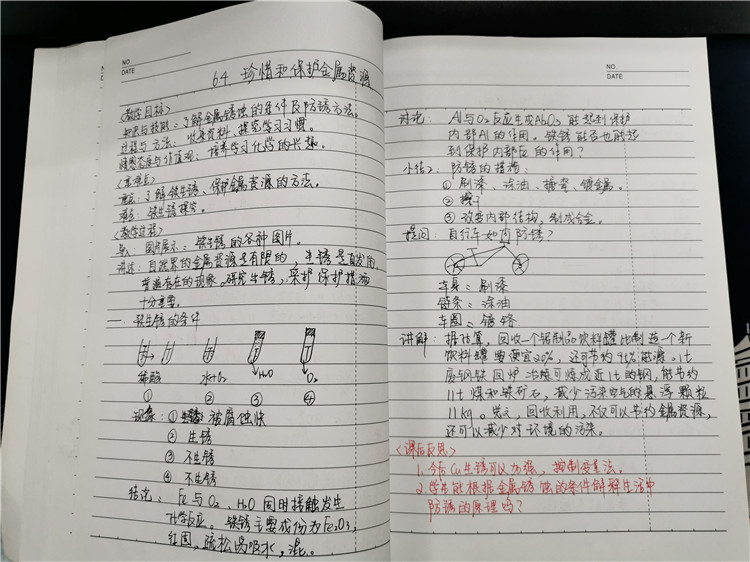 NO.
DATE
6.4 珍惜和保护金属资源
<教学目标>
知识与技能：了解金属锈蚀的条件及防锈方法。
过程与方法：收集资料、探究学习习惯。
情感态度与价值观：培养学习化学的兴趣。
<重难点>
重点：了解铁生锈、保护金属资源的方法。
难点：铁生锈探究。
<教学过程>
导入：图片展示：铁生锈的各种图片。
讲述：自然界的金属资源是有限的，生锈是自发的，
普遍存在的现象。研究生锈，采护保护措施
十分重要。
一. 铁生锈的条件
稀酸 水+O₂ H₂O O₂
① ② ③ ④
现象：① 被腐蚀快
② 生锈
③ 不生锈
④ 不生锈
结论：Fe与O₂、H₂O同时接触发生
化学反应。铁锈主要成份为Fe₂O₃，
红国，疏松易吸水，混。
NO.
DATE
讨论：Al与O₂反应生成Al₂O₃能起到保护
内部Al的作用。铁锈能否也能起
到保护内部Fe的作用？
小结2：防锈的措施：
① 刷漆、涂油、搪瓷、镀金属。
② 擦干
③ 改变内部结构，制成合金。
提问：自行车如何防锈？
车身：刷漆
链条：涂油
车圈：镀铬
讲解：据估算，回收一个铝制品饮料罐比制造一个新
饮料罐要便宜20%，还可节约95%能源。1t
废钢铁回炉冶炼可炼成近1t的钢，能节约
11t煤和铁矿石，减少污染空气的悬浮颗粒
11kg。总之，回收利用，不仅可以节约金属资源，
还可以减少对环境的污染。
<课后反思>
1. 今后Cu生锈可以为强，控制变量法。
2. 学生能根据金属锈蚀的条件解释生活中
防锈的原理吗？